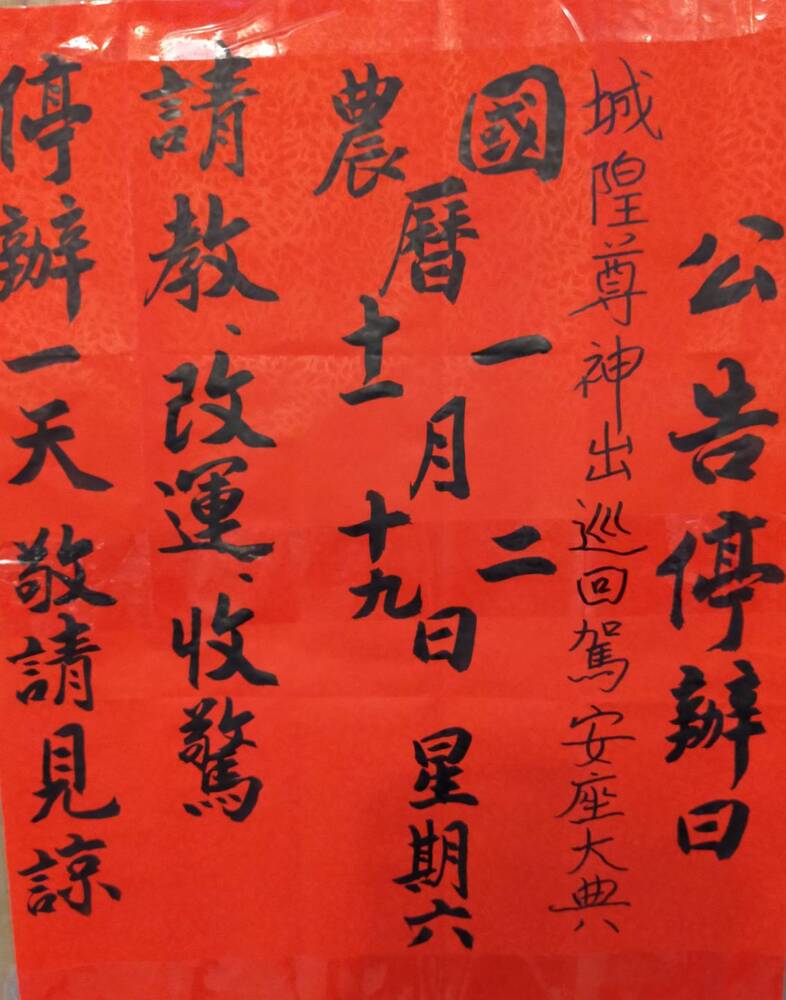 公告停辦日
城隍尊神出巡回駕安座大典
國 一 二
曆 月 日 星期六
農 十一 十九
請教、改運、收驚
停辦一天敬請見諒